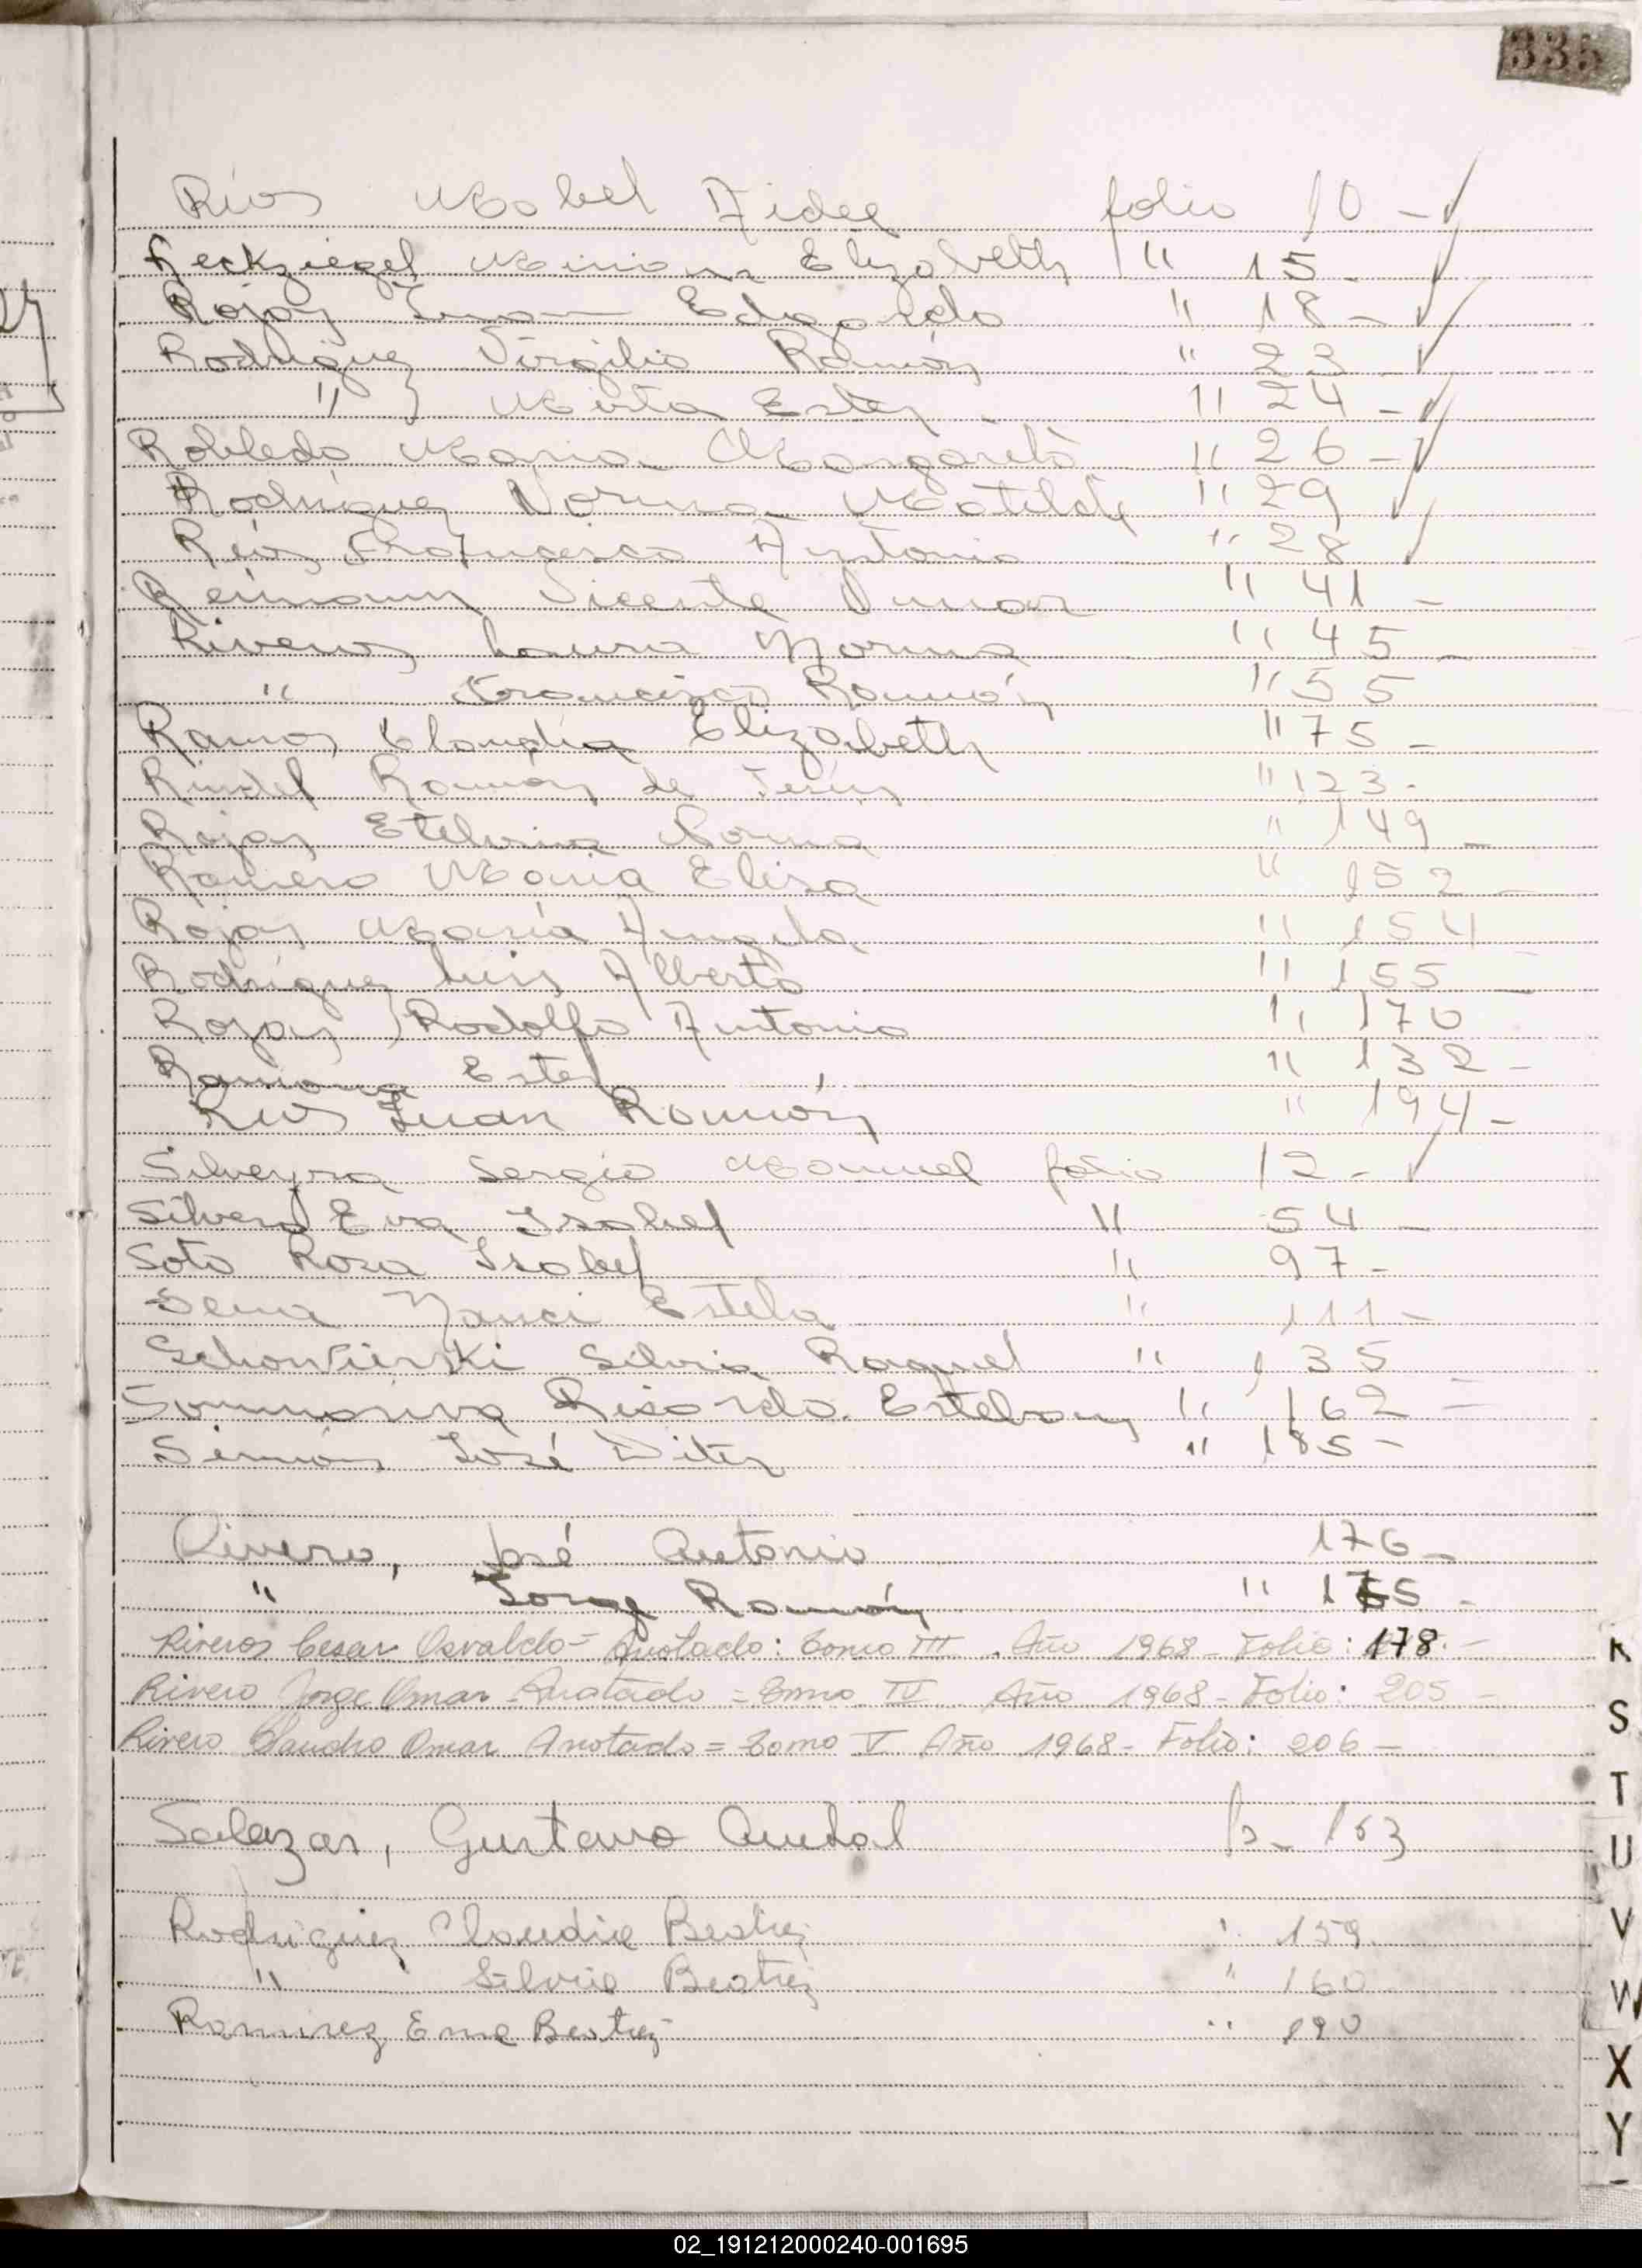 335
Ríos Mabel Aidee folio 10 -
Reckziegel Miriam Elizabeth " 15 -
Rojas Juan Edgardo " 18 -
Rodriguez Virgilio Ramón " 23 -
" Mirta Ester " 24 -
Robledo Maria Margarita " 26 -
Rodriguez Norma Matilde " 29
Ríos Francisco Antonio " 28
Reimann Vicente Omar " 41 -
Riveros Laura Norma " 45 -
" Francisco Ramón " 55
Ramos Claudia Elizabeth " 75 -
Rindel Ramón de Jesús " 123 -
Rojas Etelvina Norma " 149 -
Romero Maria Elisa " 152 -
Rojas María Angela " 154
Rodriguez Luis Alberto " 155 -
Rojas Rodolfo Antonio " 170
Ramona Ester " 132 -
Rios Juan Ramón " 194 -
Silveyra Sergio Manuel folio 12 -
Silvero Eva Isabel " 54 -
Soto Rosa Isabel " 97 -
Sena Nanci Estela " 111 -
Silvia Raquel " 135
Sommariva Ricardo Esteban " 162 -
Simón José " 185 -
Rivero, José Antonio 176 -
" Jorge Ramón "
Riveros Cesar Osvaldo = Anotado: Tomo III. Año 1968 - Folio: 178. -
Rivero Jorge Omar - Anotado = Tomo IV Año 1968 - Folio: 205 -
Rivero Claudio Omar Anotado = Tomo V Año 1968 - Folio: 206 -
Salazar, Gustavo Anibal 163
Rodriguez Claudia Beatriz " 159
" Silvia Beatriz " 160
Ramirez Ema Beatriz " 190
R
S
T
U
V
W
X
Y
02_191212000240-001695